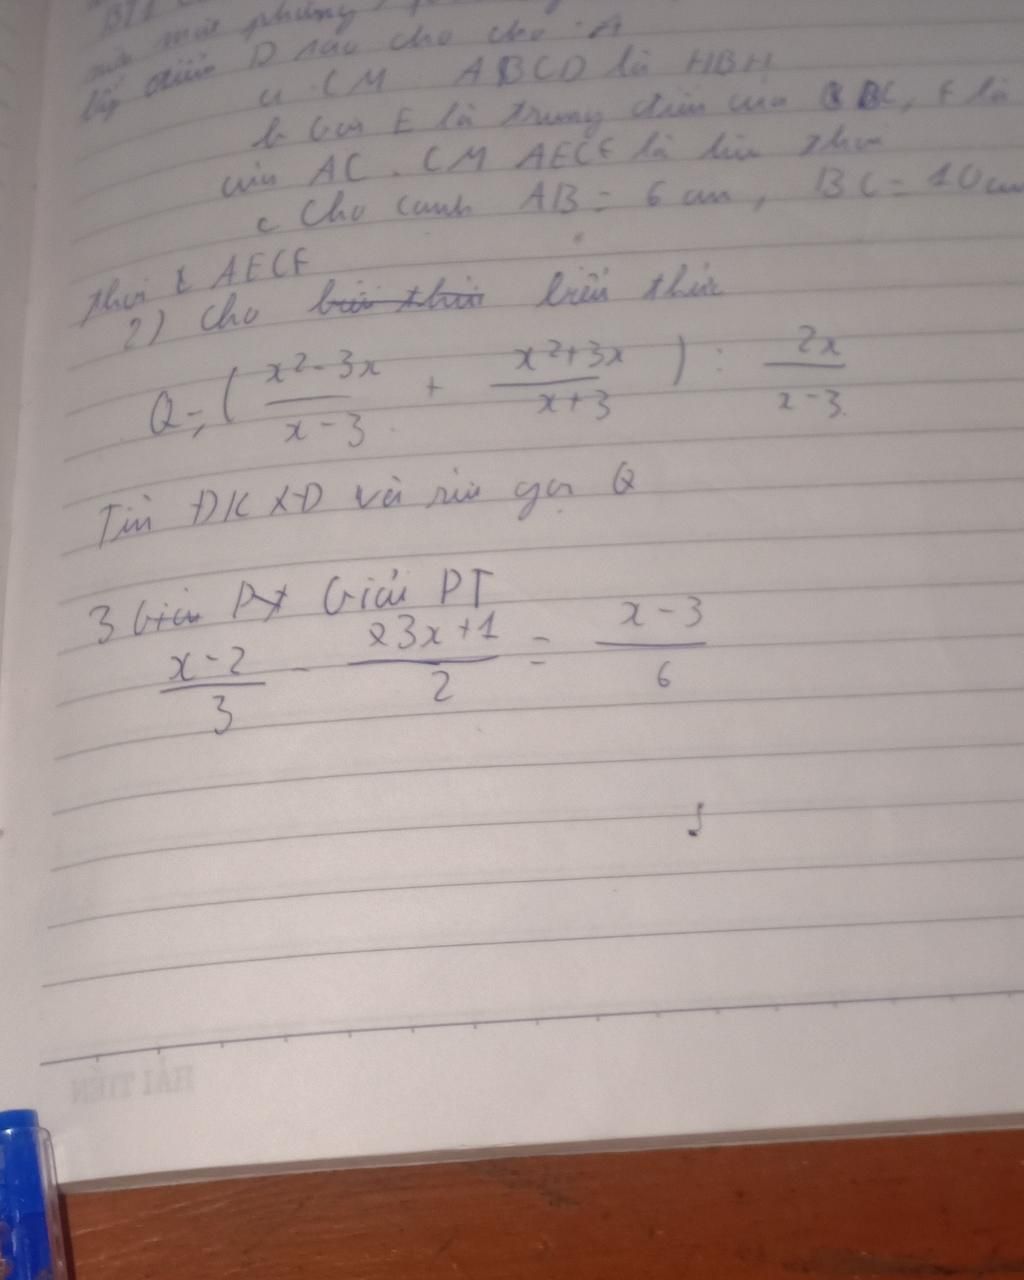 BT1
lấy điểm D sao cho cho A
a. CM ABCD là HBH
b Gọi E là trung điểm của BC, F là
của AC. CM AECF là hìn thoi
c Cho cạnh AB = 6 cm, BC = 10 cm
thoi AECF
2) Cho biểu thức biểu thức
Q = ( \frac{x2-3x}{x-3} + \frac{x2+3x}{x+3} ) : \frac{2x}{x-3}
Tìm ĐKXĐ và rút gọn Q
3 Giải Pt Giải PT
\frac{x-2}{3} - \frac{3x+1}{2} = \frac{x-3}{6}
HẢI TIẾN